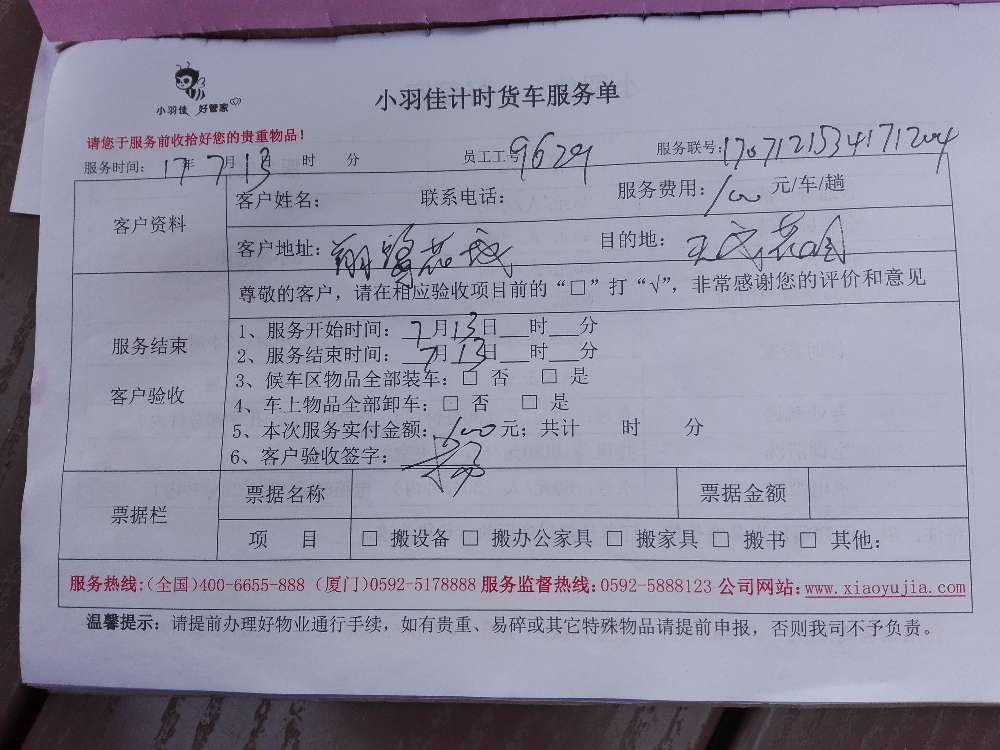 小羽佳 好管家
小羽佳计时货车服务单
请您于服务前收拾好您的贵重物品！
服务时间： 17年 7月 13日 时 分 员工工号9629 服务联号：
客户资料
客户姓名： 联系电话： 服务费用：100 元/车/趟
客户地址： 目的地：
服务结束
客户验收
尊敬的客户，请在相应验收项目前的“□”打“√”，非常感谢您的评价和意见
1、服务开始时间： 7月13日___时___分
2、服务结束时间： 7月13日___时___分
3、候车区物品全部装车：□ 否 □ 是
4、车上物品全部卸车：□ 否 □ 是
5、本次服务实付金额：100元；共计 时 分
6、客户验收签字：
票据栏
票据名称 票据金额
项 目 □ 搬设备 □ 搬办公家具 □ 搬家具 □ 搬书 □ 其他：
服务热线：(全国)400-6655-888 (厦门)0592-5178888 服务监督热线：0592-5888123 公司网站：www.xiaoyujia.com
温馨提示：请提前办理好物业通行手续，如有贵重、易碎或其它特殊物品请提前申报，否则我司不予负责。